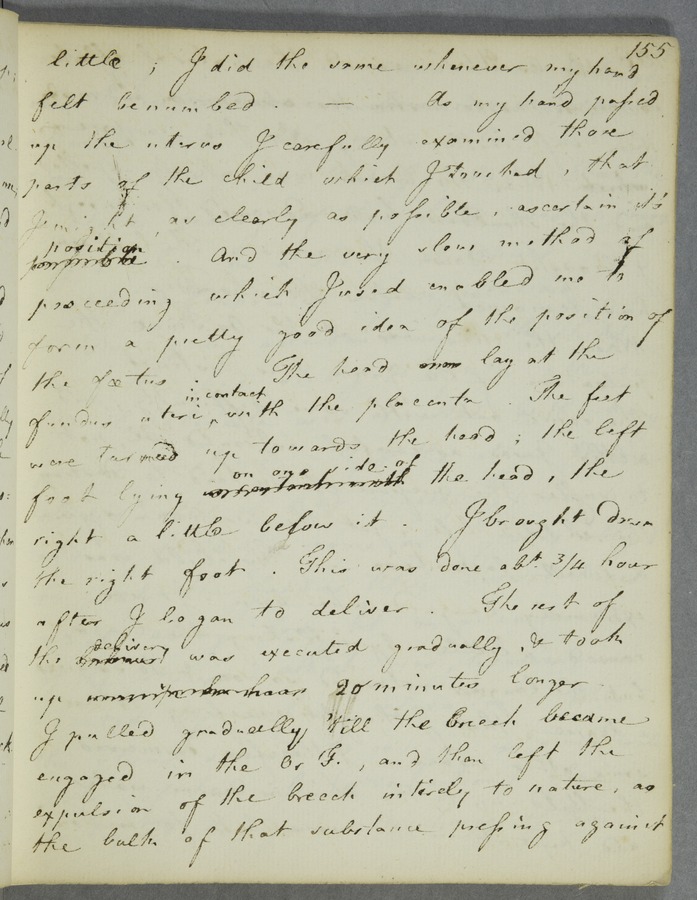 155
little ; I did the same whenever my hand
felt benumbed . — As my hand passed
up the uterus I carefully examined those
parts of the child which I touched , that
I might , as clearly as possible , ascertain it's
position
. And the very slow method of
proceeding which I used enabled me to
form a pretty good idea of the position of
the fœtus . The head lay at the
in contact
fundus uteri , with the placenta . The feet
were turned up towards the head ; the left
on one side of
foot lying the head , the
right a little below it . I brought down
the right foot . This was done abt. 3/4 hour
after I began to deliver . The rest of
delivery
the was executed gradually , & took
up 20 minutes longer
I pulled gradually, 'till the breech became
engaged in the Or F. , and then left the
expulsion of the breech intirely to nature , as
the bulk of that substance pressing against